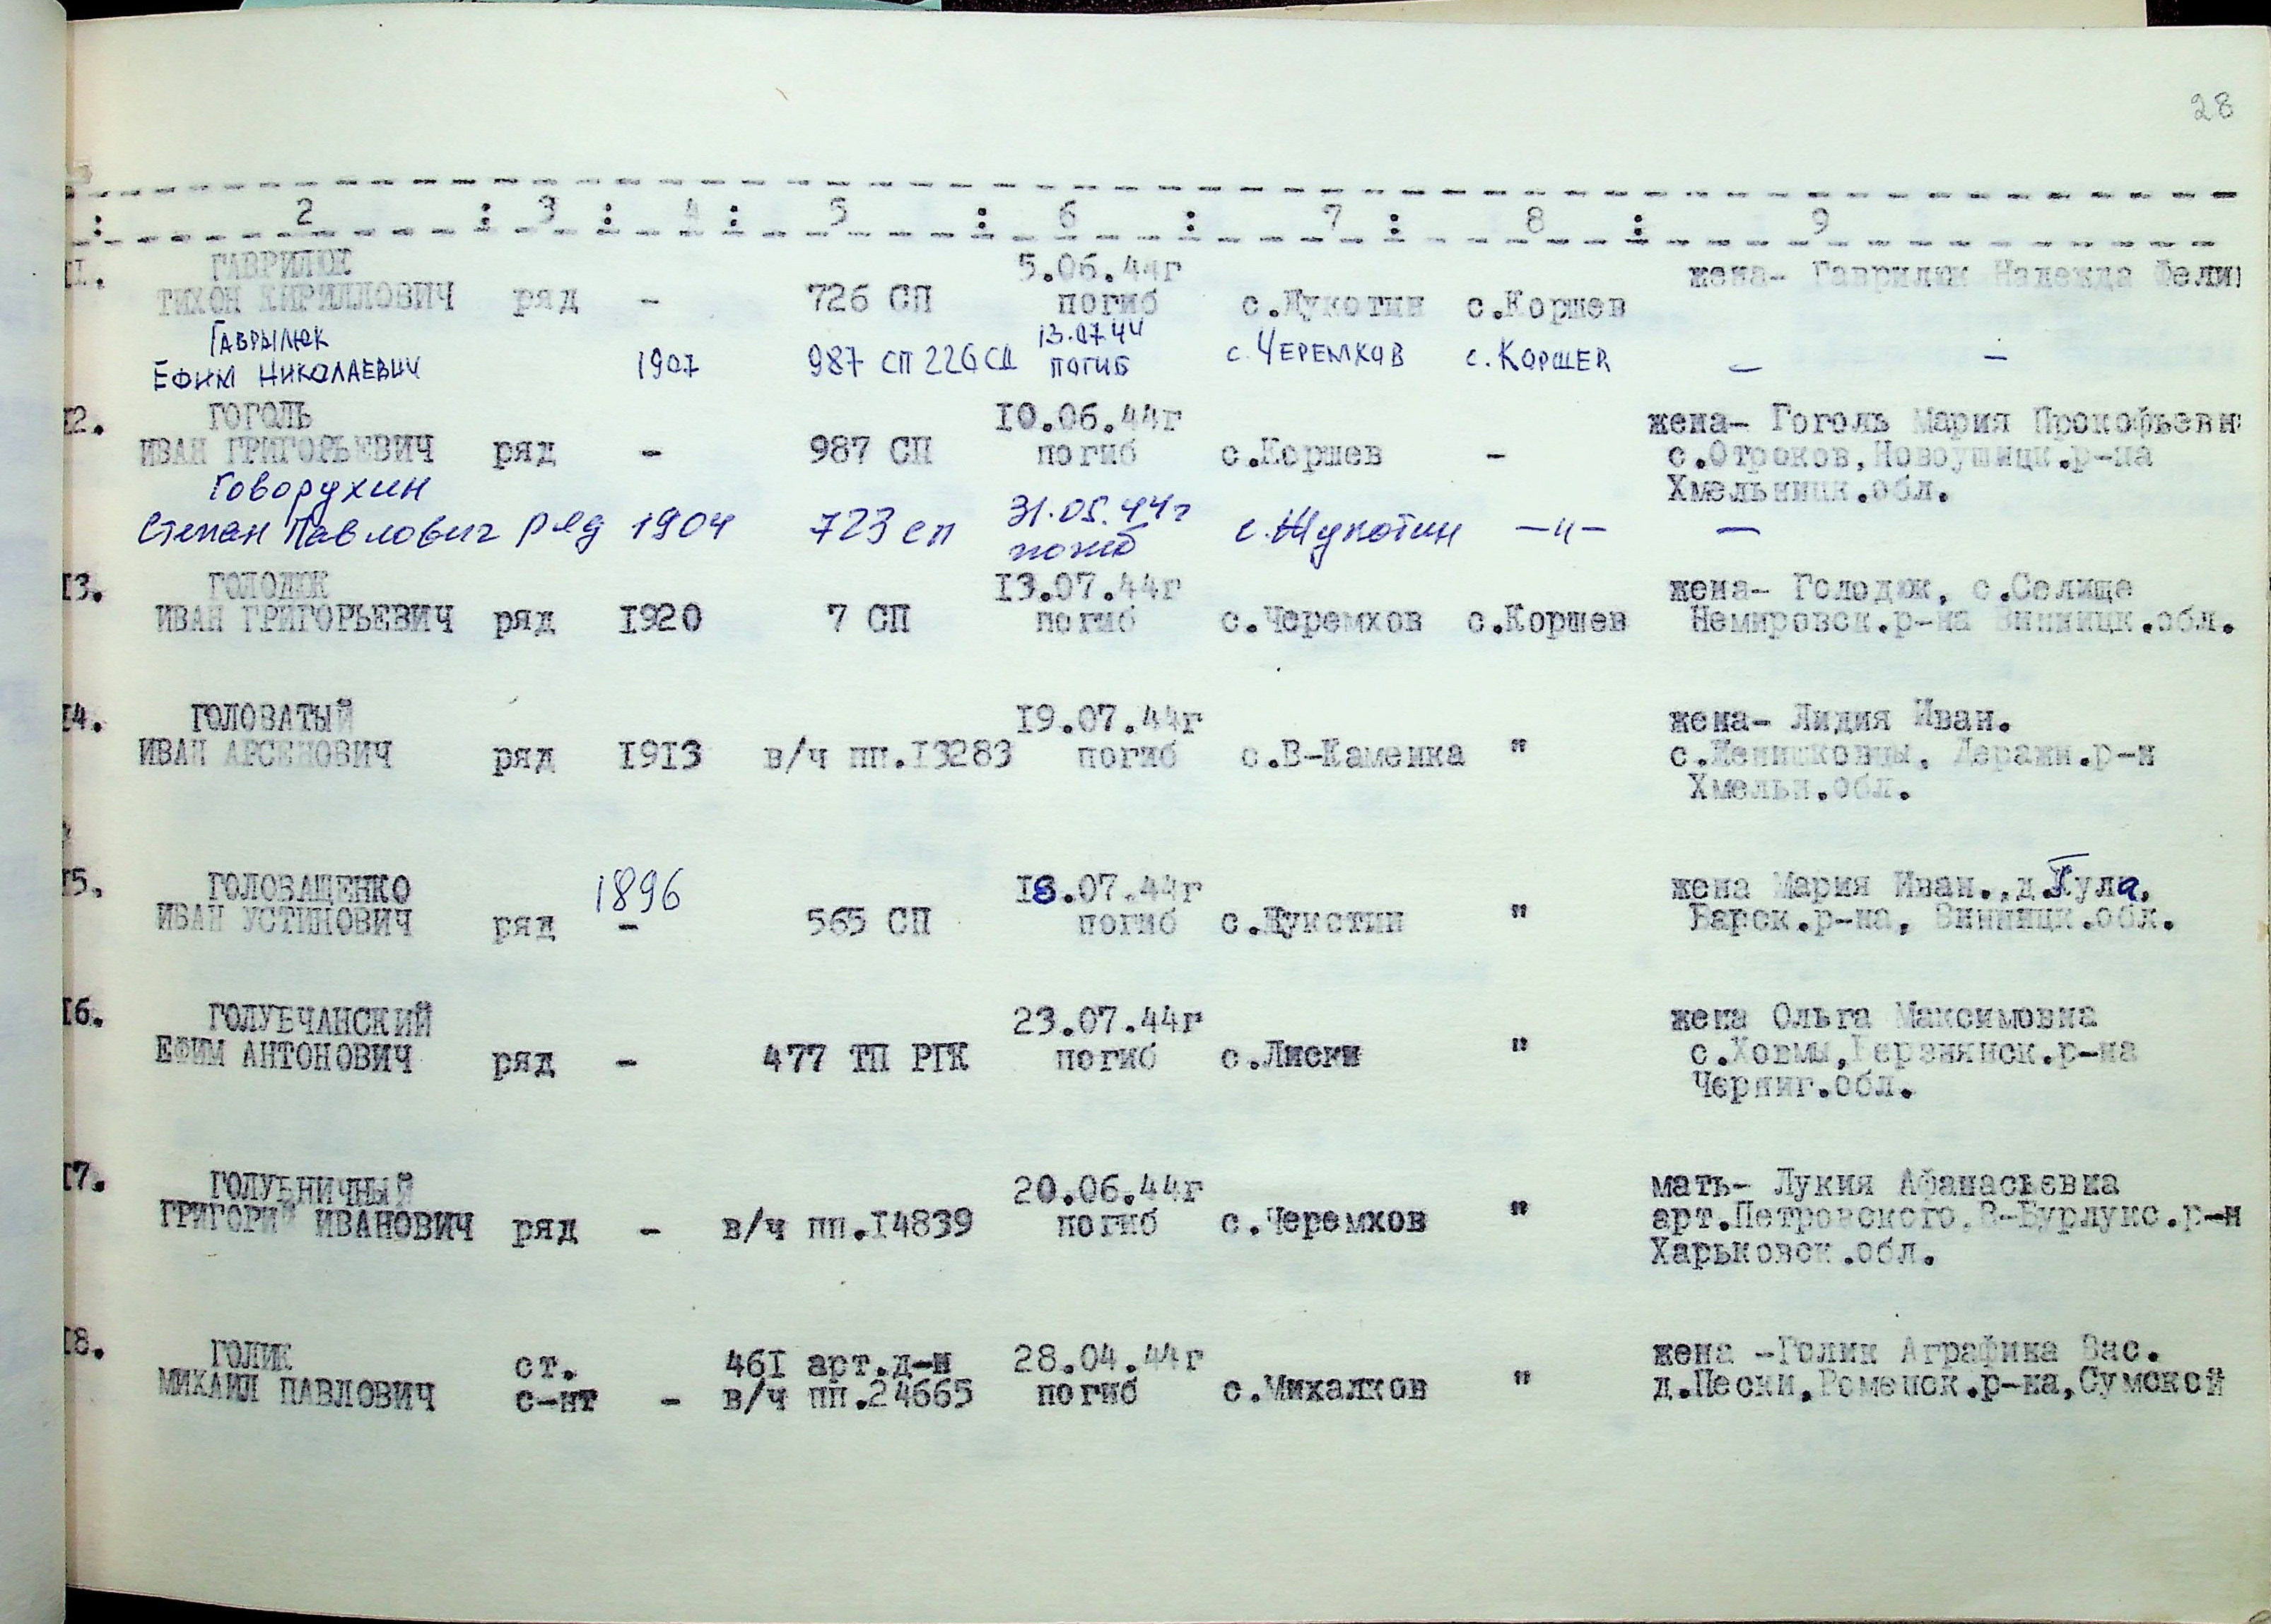 28
: 2 : 3 : 4 : 5 : 6 : 7 : 8 : 9
II. ГАВРИЛЮК 5.06.44г жена- Гаврилюк Надежда Фели
ТИХОН КИРИЛЛОВИЧ ряд - 726 СП погиб с.Жукотин с.Коршев
Гаврылюк 13.07.44
Ефим Николаевич 1907 987 СП 226 СД погиб с. Черемхов с. Коршев — —
I2. ГОГОЛЬ I0.06.44г жена- Гоголь Мария Прокофьевн
ИВАН ГРИГОРЬЕВИЧ ряд - 987 СП погиб с.Коршев - с.Отроков,Новоушицк.р-на
Хмельницк.обл.
Говорухин 31.05.44г
Степан Павлович ряд 1904 723 сп погиб с.Жукотин —"— —
I3. ГОЛОДЮК I3.07.44г жена- Голодюк, с.Селище
ИВАН ГРИГОРЬЕВИЧ ряд I920 7 СП погиб с.Черемхов с.Коршев Немировск.р-на Винницк.обл.
I4. ГОЛОВАТЫЙ I9.07.44г жена- Лидия Иван.
ИВАН АРСЕНОВИЧ ряд I9I3 в/ч пп.I3283 погиб с.В-Каменка " Деражн.р-н
Хмельн.обл.
I5. ГОЛОВАЩЕНКО 1896 I8.07.44г жена Мария Иван.,
ИВАН УСТИНОВИЧ ряд - 565 СП погиб с.Жукотин " Барск.р-на, Винницк.обл.
I6. ГОЛУБЧАНСКИЙ 23.07.44г жена Ольга Максимовна
ЕФИМ АНТОНОВИЧ ряд - 477 ТП РГК погиб с.Лиски " с.Ховмы,Берзнянск.р-на
Черниг.обл.
I7. ГОЛУБНИЧНЫЙ 20.06.44г мать- Лукия Афанасьевна
ГРИГОРИЙ ИВАНОВИЧ ряд - в/ч пп.I4839 погиб с.Черемхов " арт.Петровского,В-Бурлукс.р-н
Харьковск.обл.
I8. ГОЛИК ст. 46I арт.д-н 28.04.44г жена -Голик Аграфика Вас.
МИХАИЛ ПАВЛОВИЧ с-нт - в/ч пп.24665 погиб с.Михалков " д.Пески,Роменск.р-на,Сумской